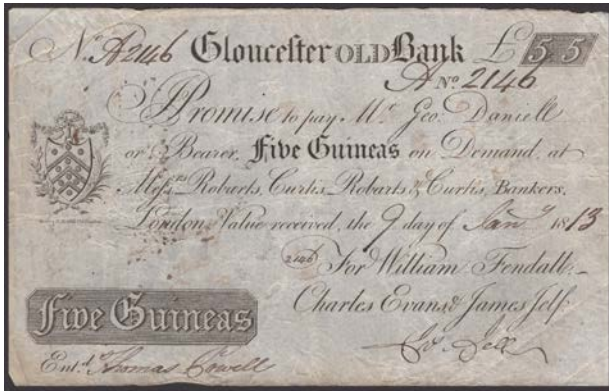 No. A2146 Gloucester OLD Bank £ 5 5
A No. 2146
I Promise to pay Mr. Geo. Daniell
or Bearer, Five Guineas on Demand, at
Messrs. Robarts, Curtis, Robarts & Curtis, Bankers,
London, Value received, the 9 day of Jany 1813
2146 For William Fendall,
Charles Evans & James Jelf
Five Guineas
Entd. Thomas Cowell